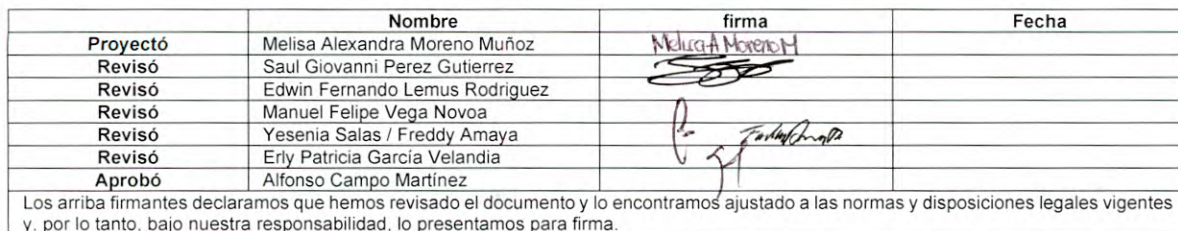 Nombre firma Fecha
Proyectó Melisa Alexandra Moreno Muñoz Melisa A Moreno M
Revisó Saul Giovanni Perez Gutierrez
Revisó Edwin Fernando Lemus Rodriguez
Revisó Manuel Felipe Vega Novoa
Revisó Yesenia Salas / Freddy Amaya
Revisó Erly Patricia García Velandia
Aprobó Alfonso Campo Martínez
Los arriba firmantes declaramos que hemos revisado el documento y lo encontramos ajustado a las normas y disposiciones legales vigentes
y, por lo tanto, bajo nuestra responsabilidad, lo presentamos para firma.